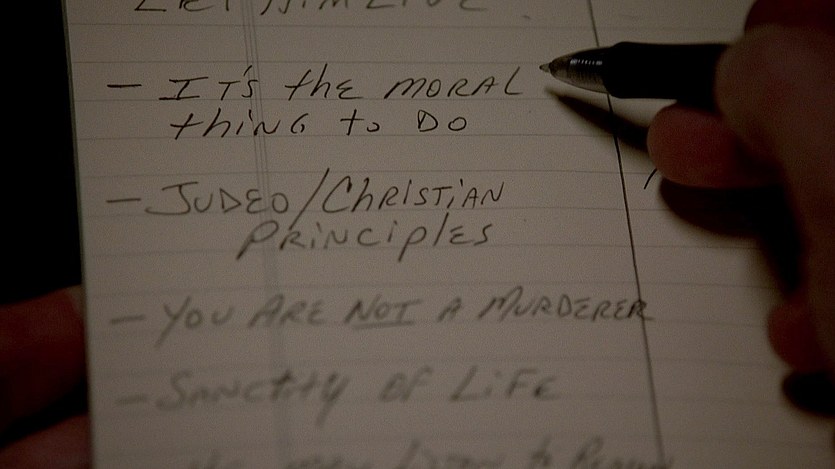 LET HIM LIVE
- IT'S thE MORAL
thiNG to DO
- JUDEO/ChRISTiAN
PRiNCiplES
- YOU ARE NOT A MURDERER
- SANCtity OF LiFE
to REASON